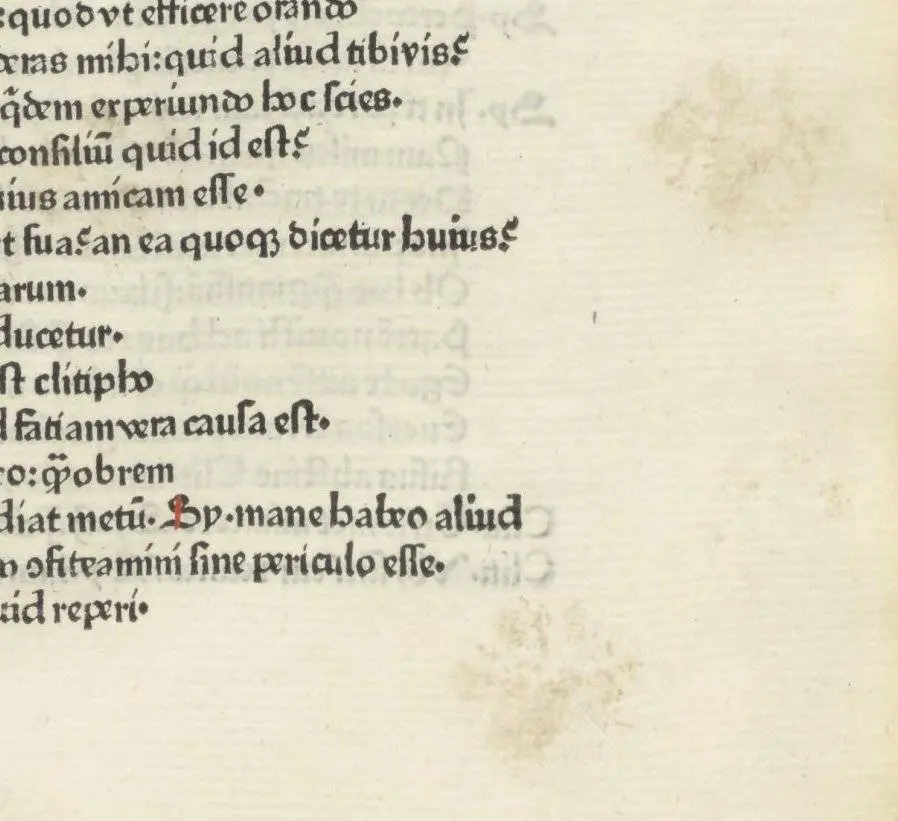 :quod vt efficere orando
eras mihi:quid aliud tibi vis?
q̃dem experiundo hoc scies.
consiliū quid id est?
ius amicam esse.
t sua?an ea quoqꝫ dicetur huius?
arum.
ducetur.
st clitipho
d fatiam vera causa est.
co:q̃obrem
diat metū. Sy.mane habeo aliud
ꝯfiteamini sine periculo esse.
reperi.